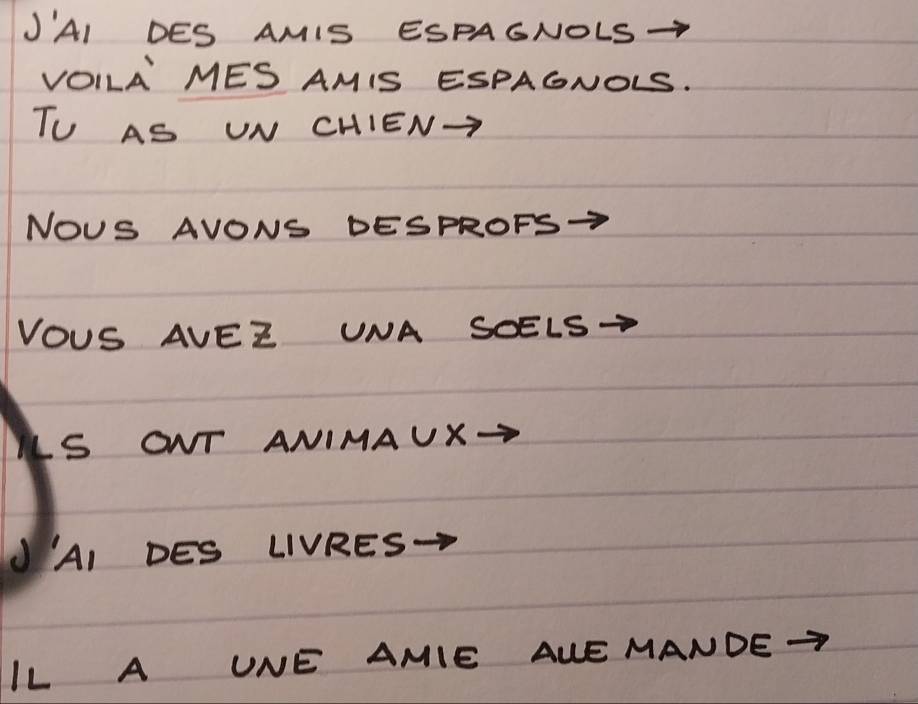 J'AI DES AMIS ESPAGNOLS→
VOILÀ MES AMIS ESPAGNOLS.
TU AS UN CHIEN→
NOUS AVONS DESPROFS→
VOUS AVEZ UNA SOELS→
ILS ONT ANIMAUX→
J'AI DES LIVRES→
IL A UNE AMIE ALLEMANDE→